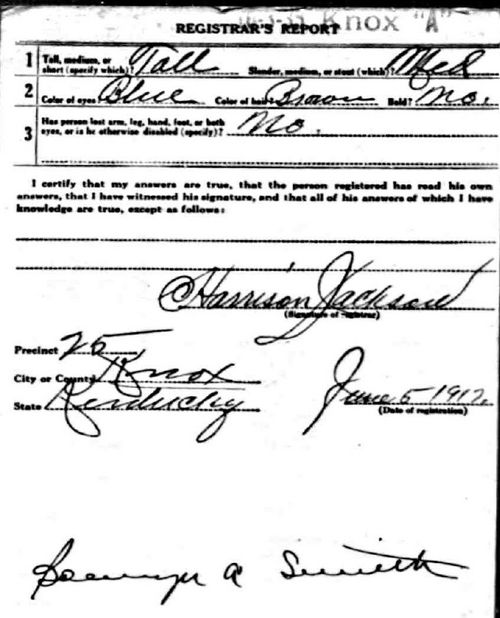 10-3-35 Knox "A"
REGISTRAR'S REPORT
1 Tall, medium, or short (specify which)? Tall Slender, medium, or stout (which)? Med
2 Color of eyes Blue Color of hair Brown Bald? No.
3 Has person lost arm, leg, hand, foot, or both eyes, or is he otherwise disabled (specify)? No.
I certify that my answers are true, that the person registered has read his own
answers, that I have witnessed his signature, and that all of his answers of which I have
knowledge are true, except as follows:
Harrison Jackson
(Signature of registrar)
Precinct 25
City or County Knox
State Kentucky
June 5 1917.
(Date of registration)
A Smith